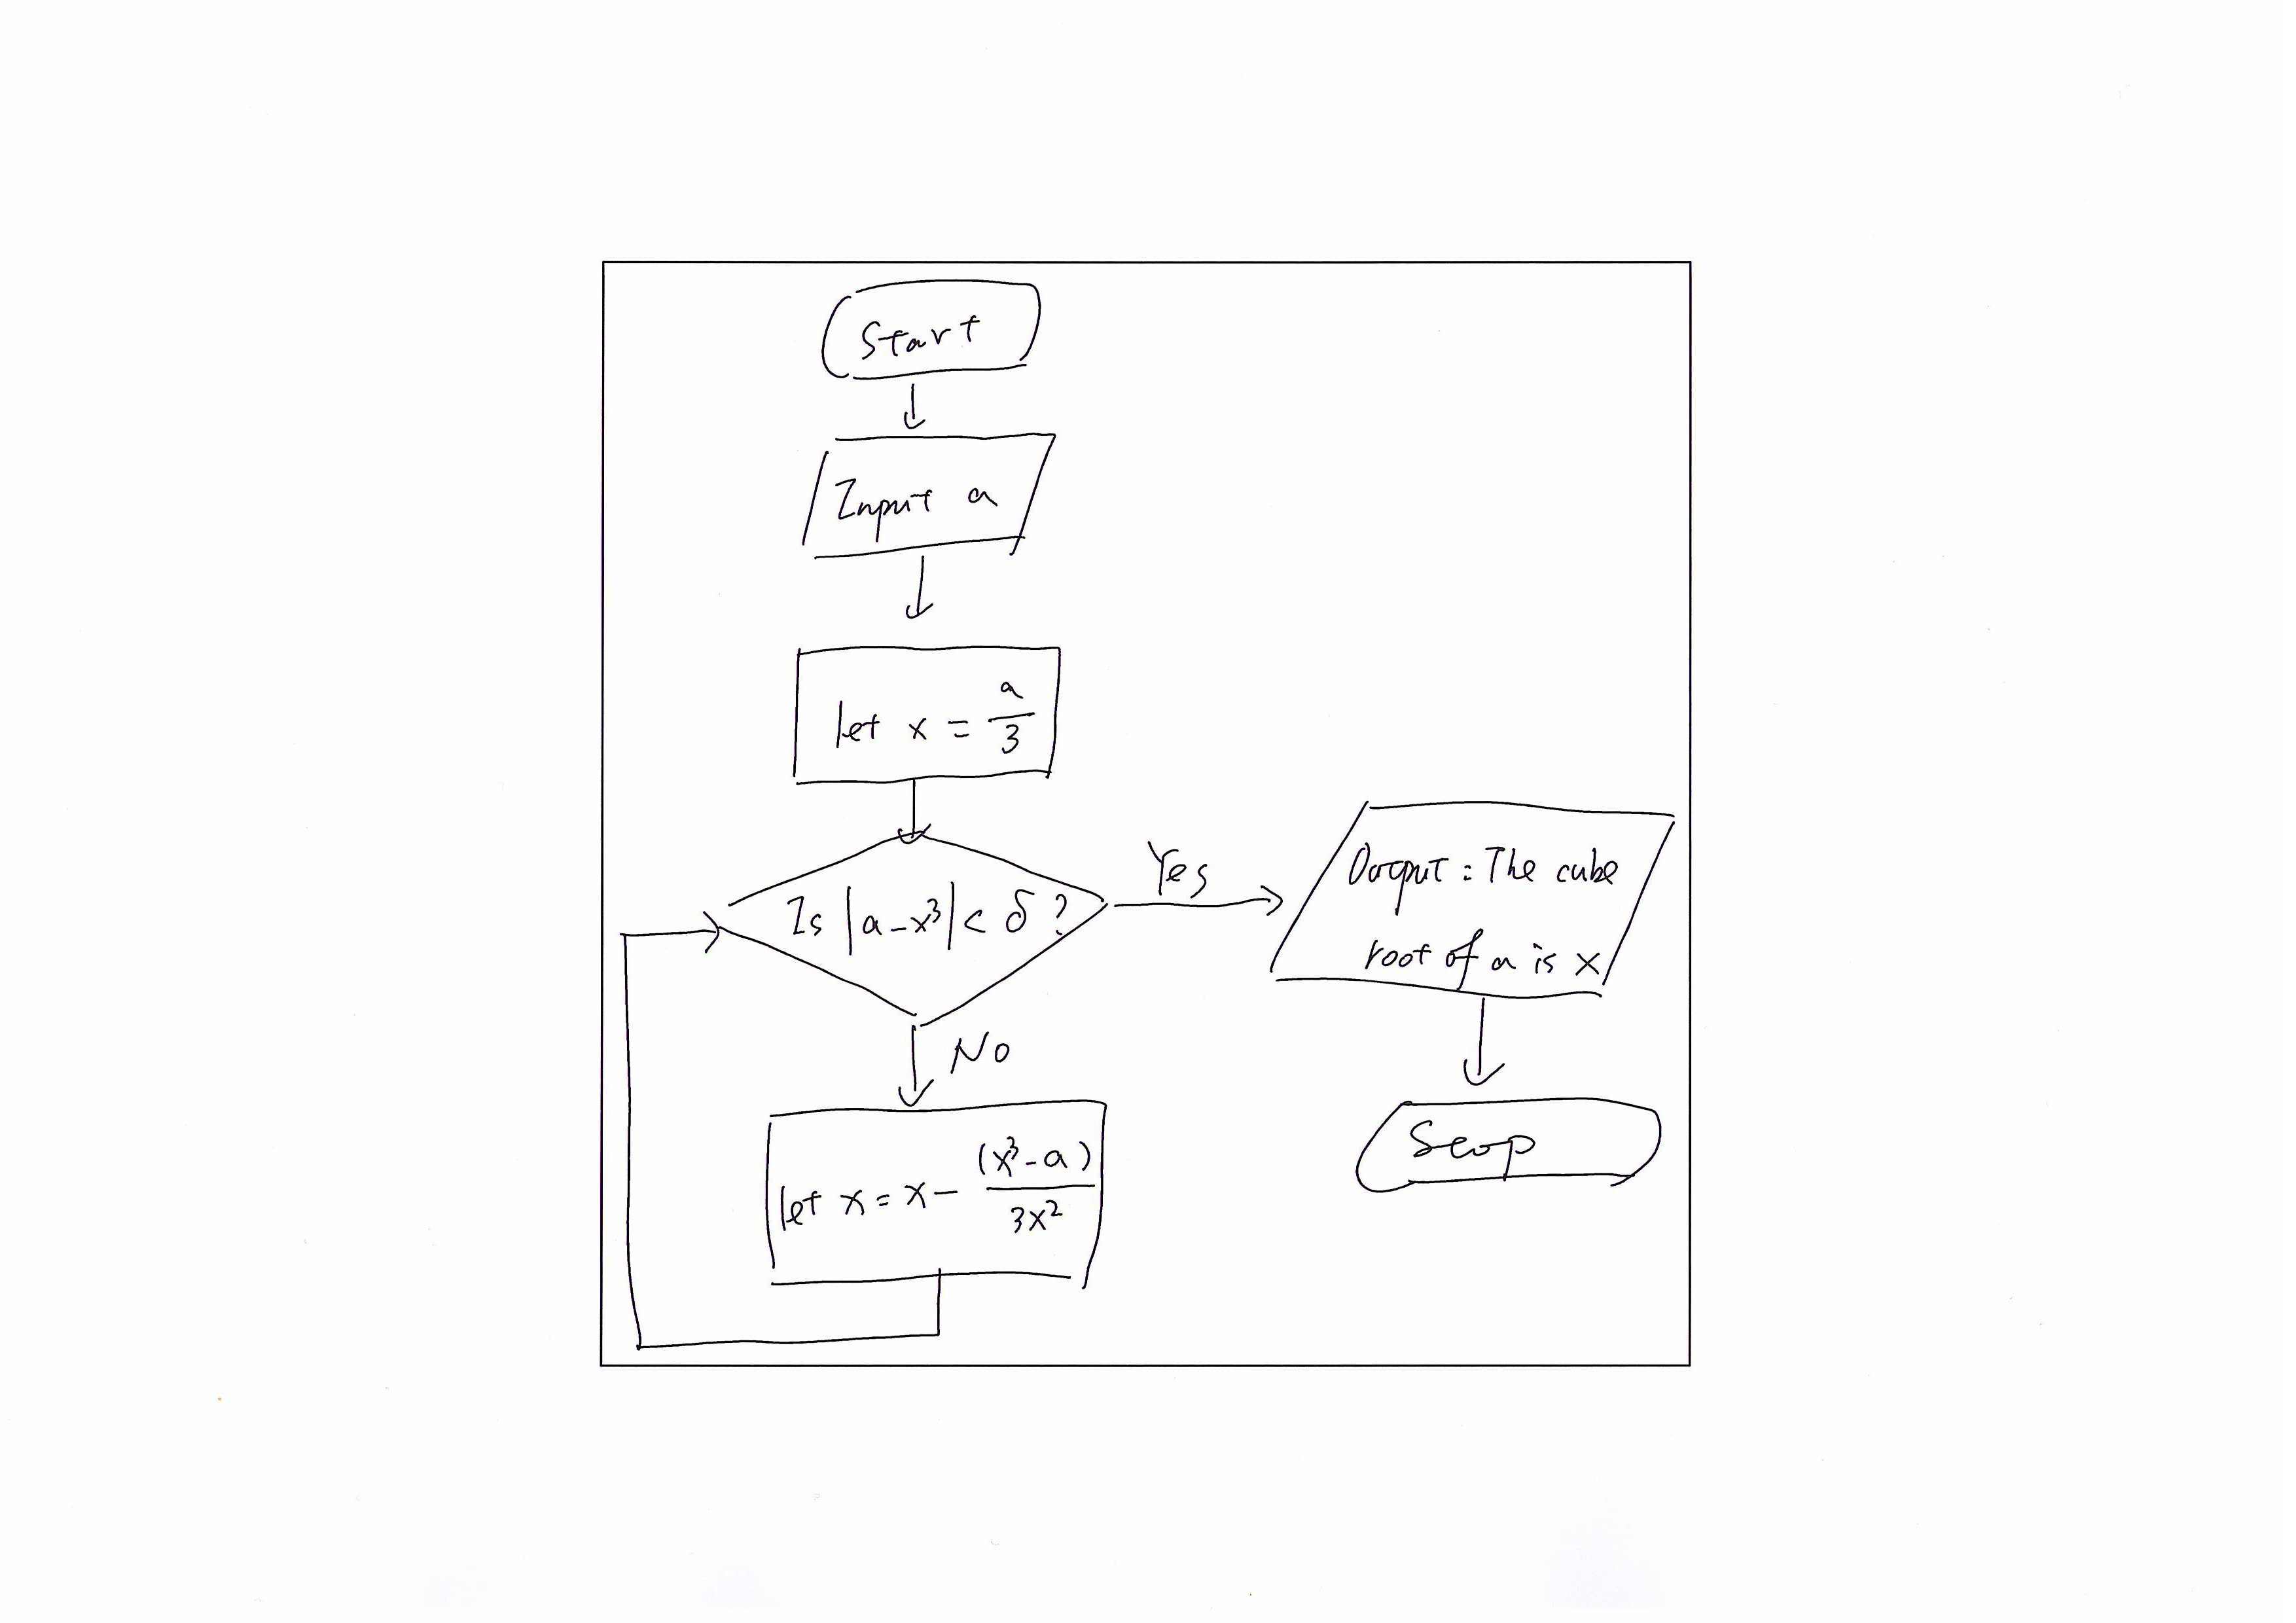 Start
Input a
let x = a/3
Is |a-x³| < δ ?
Yes
Output : The cube
root of a is x
No
let x = x - (x³-a)/3x²
Stop